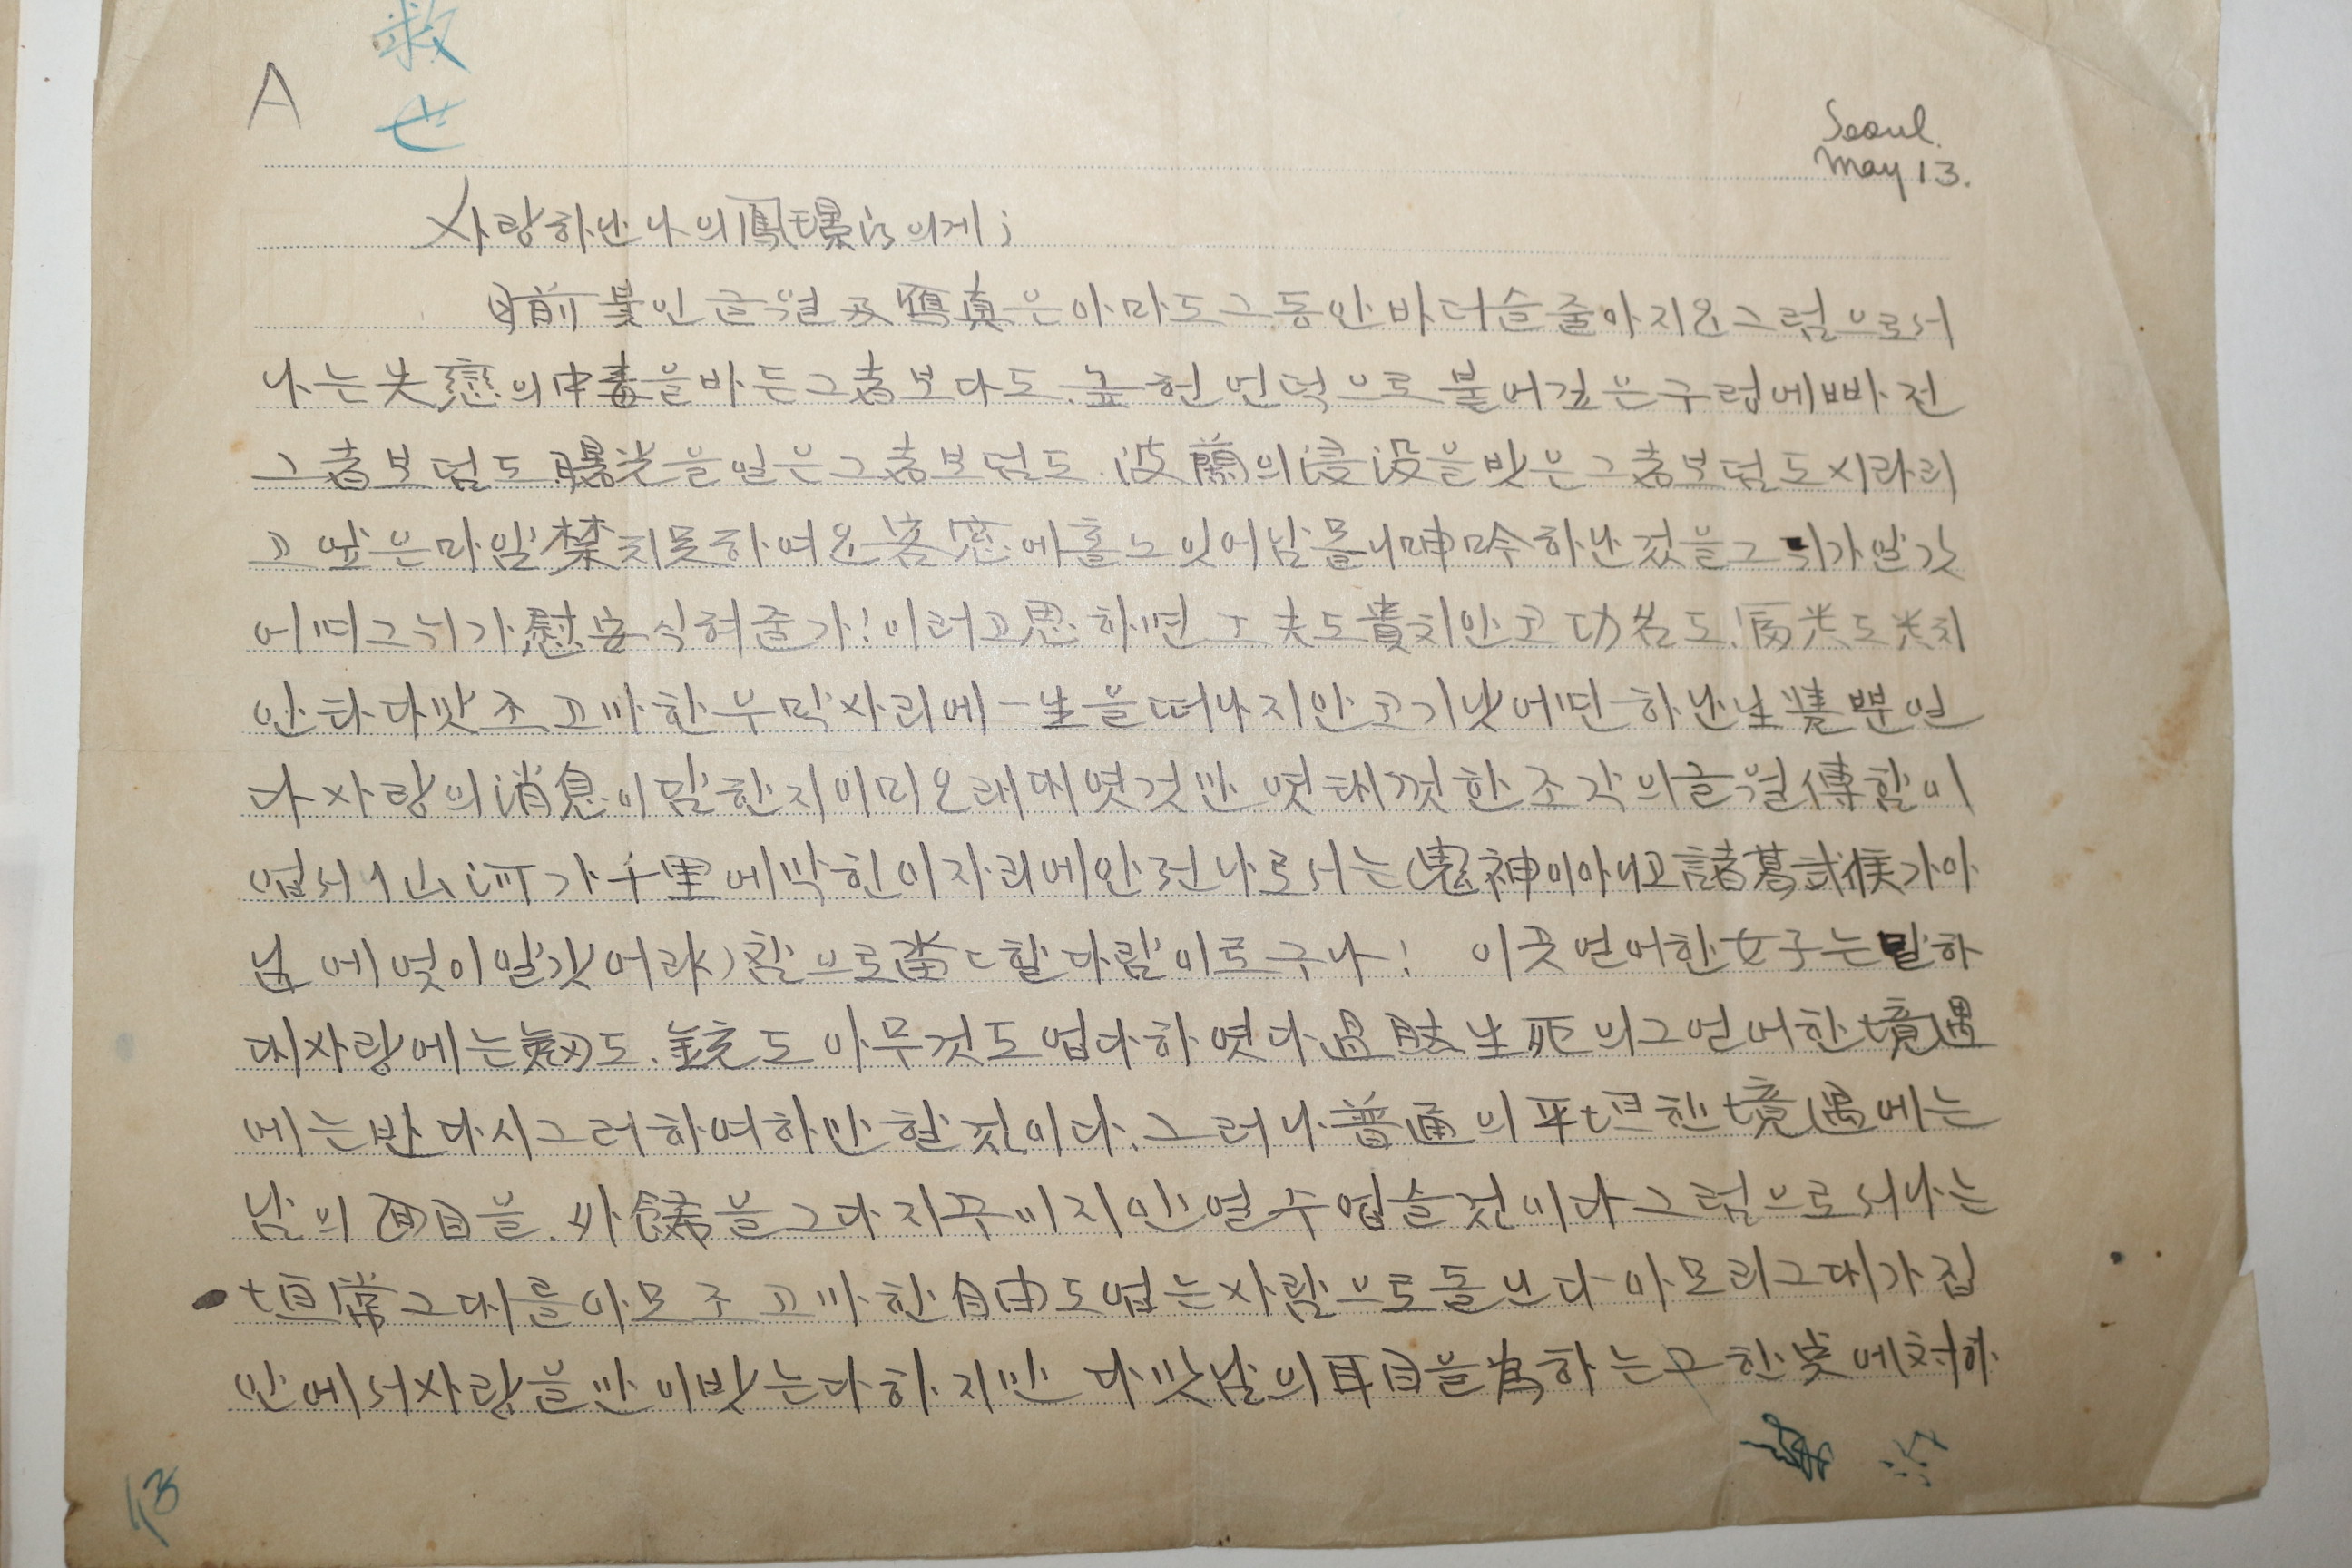 救世
A
Seoul.
May 13.
사랑하난 나의 鳳環氏의게;
日前 붗인 글월 及 寫真은 아마도 그동안 바더슬줄 아지요 그럼으로서
나는 失戀의 中毒을 바든 그者보다도. 높헌 언덕으로 붙어 깊은 구렁에 빠전
그者보덤도 曝光을 일은 그者보덤도. 波蘭의 浸沒을 밧은 그者보덤도 시라리
고 앞은 마암 禁치못하여오 客窓에 홀노 잇어 남몰내 呻吟하난 것을 그 뉘가 알갓
어며 그 뉘가 慰安식혀줄가! 이러고 思하면 工夫도 貴치안코 功名도. 光도 光치
안타 다맛 조고마한 부막사리에 一生을 떠나지안코 기낫에면 하난 生 뿐인
다 사랑의 消息이 맘한지 이미 오래대엿것만 엿태껏 한조각의 글월 傳함이
업서니 山河가 千里에 막힌 이자리에 안전 나로서는 (鬼神이 아니고 諸葛武侯가 아
님에 엇이 알갓어랴) 참으로 畓ㄷ할 다람이로구나! 이곳 언어한 女子는 말하
대 사랑에는 劒도. 銃도 아무것도 업다 하엿다 過然 生死의 그 언어한 境遇
에는 반다시 그러하여하만 할것이다. 그러나 普通의 平坦한 境遇에는
남의 面目을. 을 그다지 꾸미지 안열수 업슬것이다 그럼으로서 나는
恒常 그대를 아모 조고마한 自由도 업는 사람으로 돌닌다 아모리 그대가 집
안에서 사랑을 만이 밧는다 하지만 다맛 남의 耳目을 為하는 한 에 対하
13